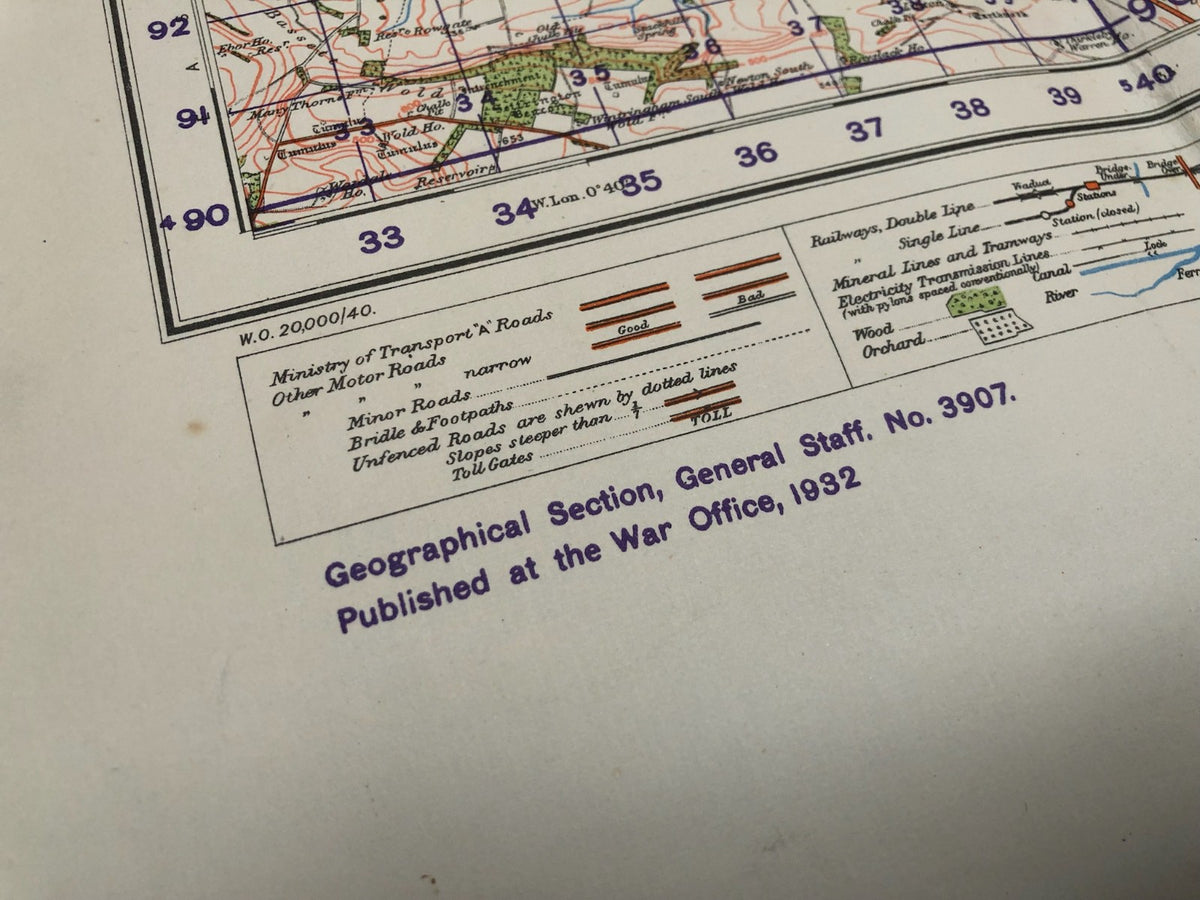 92
Ebor Ho.
Rest. Rowgate
37
36
35
91
Many Thorns Fm.
Wold
34
Tumulus
33
Chalk Pit
Wold Ho.
Tumulus
Tumulus
Tumulus
Newton South
653
Reservoirs
Wardale Ho.
490
33
34
W. Lon. 0° 40'
35
36
37
38
39
540
W.O. 20,000/40.
Ministry of Transport "A" Roads
Other Motor Roads
Good
Bad
" " narrow
Minor Roads
Bridle & Footpaths
Unfenced Roads are shewn by dotted lines
Slopes steeper than 1/7
Toll Gates
TOLL
Railways, Double Line
Viaduct
Bridge. Under
Bridge Over
Stations
" Single Line
Station (closed)
Mineral Lines and Tramways
Electricity Transmission Lines
(with pylons spaced conventionally)
Canal
Lock
River
Wood
Orchard
Geographical Section, General Staff. No. 3907.
Published at the War Office, 1932